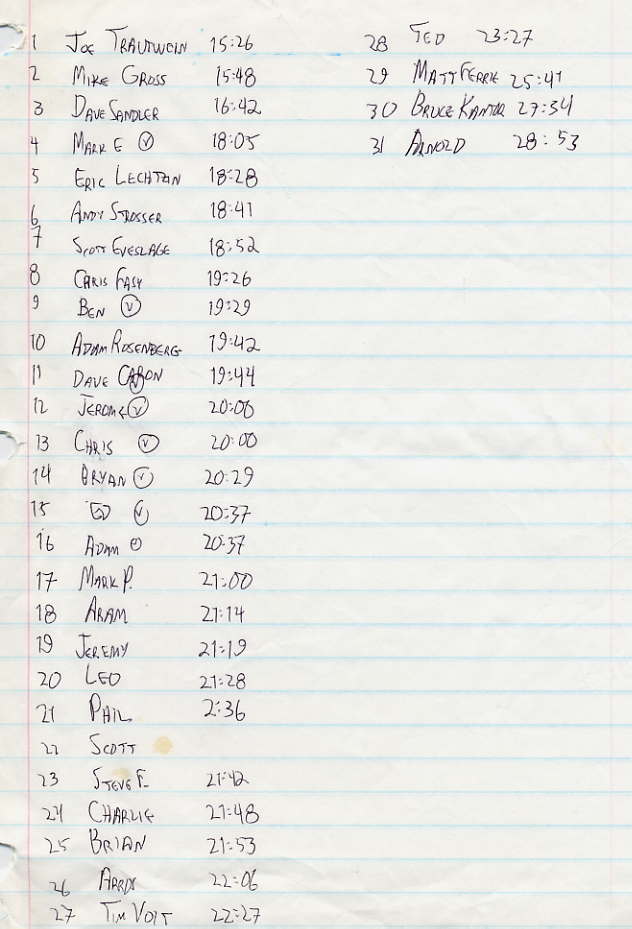 1 Joe Trautwein 15:26
2 Mike Gross 15:48
3 Dave Sandler 16:42
4 Mark E V 18:05
5 Eric Lechtzin 18:28
6 Andy Strosser 18:41
7 Scott Eveslage 18:52
8 Chris Fasy 19:26
9 Ben V 19:29
10 Adam Rosenberg 19:42
11 Dave Caron V 19:44
12 Jerome V 20:00
13 Chris V 20:00
14 Bryan V 20:29
15 Ed V 20:37
16 Adam 20:37
17 Mark P. 21:00
18 Aram 21:14
19 Jeremy 21:19
20 Leo 21:28
21 Phil 2:36
22 Scott
23 Steve F. 21:42
24 Charlie 21:48
25 Brian 21:53
26 22:06
27 Tim Voit 22:27
28 Ted 23:27
29 Matt Ferrie 25:41
30 Bruce Kantor 27:34
31 Arnold 28:53